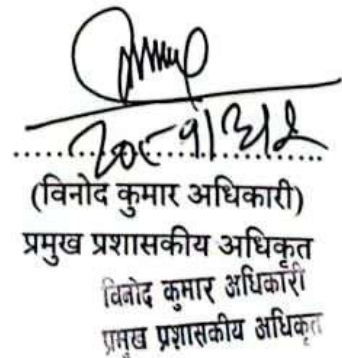 (विनोद कुमार अधिकारी)
प्रमुख प्रशासकीय अधिकृत
विनोद कुमार अधिकारी
प्रमुख प्रशासकीय अधिकृत